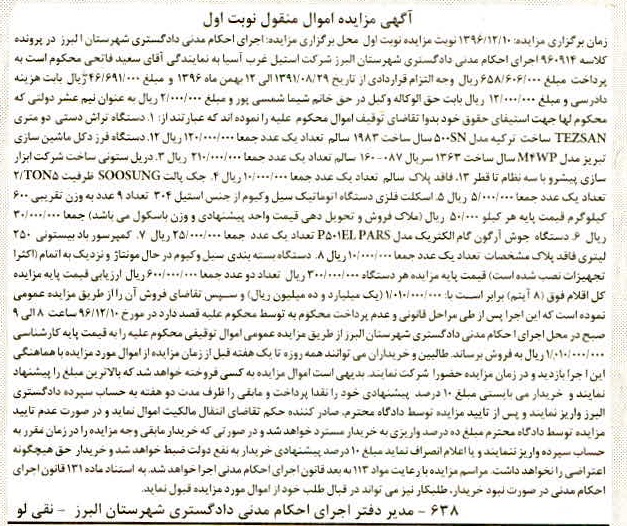 آگهی مزایده اموال منقول نوبت اول
زمان برگزاری مزایده: ۱۳۹۶/۱۲/۱۰ نوبت مزایده نوبت اول محل برگزاری مزایده: اجرای احکام مدنی دادگستری شهرستان البرز در پرونده
کلاسه ۹۶۰۹۱۴ اجرای احکام مدنی دادگستری شهرستان البرز شرکت استیل غرب آسیا به نمایندگی آقای سعید فاتحی محکوم است به
پرداخت مبلغ ۶۵۸/۶۰۶/۰۰۰ ریال وجه التزام قراردادی از تاریخ ۱۳۹۱/۰۸/۲۹ الی ۱۲ بهمن ماه ۱۳۹۶ و مبلغ ۴۶/۶۹۱/۰۰۰ ریال بابت هزینه
دادرسی و مبلغ ۱۳/۰۰۰/۰۰۰ ریال بابت حق الوکاله وکیل در حق خانم شیما شمسی پور و مبلغ ۲/۰۰۰/۰۰۰ ریال به عنوان نیم عشر دولتی که
محکوم لها جهت استیفای حقوق خود بدوا تقاضای توقیف اموال محکوم علیه را نموده اند که عبارتند از: ۱. دستگاه تراش دستی دو متری
TEZSAN ساخت ترکیه مدل ۵۰۰SN سال ساخت ۱۹۸۳ سالم تعداد یک عدد جمعا ۱۲۰/۰۰۰/۰۰۰ ریال ۲. دستگاه فرز دکل ماشین سازی
تبریز مدل M۴WP سال ساخت ۱۳۶۳ سریال ۰۸۷-۱۶۰ سالم تعداد یک عدد جمعا ۲۱۰/۰۰۰/۰۰۰ ریال ۳. دریل ستونی ساخت شرکت ابزار
سازی پیشرو با سه نظام تا قطر ۱۳، فاقد پلاک سالم تعداد یک عدد جمعا ۱۰/۰۰۰/۰۰۰ ریال ۴. جک پالت SOOSUNG ظرفیت ۲/۵TON
تعداد یک عدد جمعا ۵/۰۰۰/۰۰۰ ریال ۵. اسکلت فلزی دستگاه اتوماتیک سیل وکیوم از جنس استیل ۳۰۴ تعداد ۹ عدد به وزن تقریبی ۶۰۰
کیلوگرم قیمت پایه هر کیلو ۵۰/۰۰۰ ریال (ملاک فروش و تحویل دهی قیمت واحد پیشنهادی و وزن باسکول می باشد) جمعا ۳۰/۰۰۰/۰۰۰
ریال ۶. دستگاه جوش آرگون گام الکتریک مدل P۵۰۱EL PARS تعداد یک عدد جمعا ۲۵/۰۰۰/۰۰۰ ریال ۷. کمپرسور باد پیستونی ۲۵۰
لیتری فاقد پلاک مشخصات تعداد یک عدد جمعا ۱۰/۰۰۰/۰۰۰ ریال ۸. دستگاه بسته بندی سیل وکیوم در حال مونتاژ و نزدیک به اتمام (اکثرا
تجهیزات نصب شده است) قیمت پایه مزایده هر دستگاه ۳۰۰/۰۰۰/۰۰۰ ریال تعداد دو عدد جمعا ۶۰۰/۰۰۰/۰۰۰ ریال ارزیابی قیمت پایه مزایده
کل اقلام فوق (۸ آیتم) برابر است با: ۱/۰۱۰/۰۰۰/۰۰۰ (یک میلیارد و ده میلیون ریال) و سپس تقاضای فروش آن را از طریق مزایده عمومی
نموده است که این اجرا پس از طی مراحل قانونی و عدم پرداخت محکوم به توسط محکوم علیه قصد دارد در مورخ ۹۶/۱۲/۱۰ ساعت ۸ الی ۹
صبح در محل اجرای احکام مدنی دادگستری شهرستان البرز از طریق مزایده عمومی اموال توقیفی محکوم علیه را به قیمت پایه کارشناسی
۱/۰۱۰/۰۰۰/۰۰۰ ریال به فروش برساند. طالبین و خریداران می توانند همه روزه تا یک هفته قبل از زمان مزایده از اموال مورد مزایده با هماهنگی
این اجرا بازدید و در زمان مزایده حضورا شرکت نمایند. بدیهی است اموال مزایده به کسی فروخته خواهد شد که بالاترین مبلغ را پیشنهاد
نمایند و خریدار می بایستی مبلغ ۱۰ درصد پیشنهادی خود را نقدا پرداخت و مابقی را ظرف مدت دو هفته به حساب سپرده دادگستری
البرز واریز نمایند و پس از تایید مزایده توسط دادگاه محترم، صادر کننده حکم تقاضای انتقال مالکیت اموال نماید و در صورت عدم تایید
مزایده توسط دادگاه محترم مبلغ ده درصد واریزی به خریدار مسترد خواهد شد و در صورتی که خریدار مابقی وجه مزایده را در زمان مقرر به
حساب سپرده واریز ننمایند و یا اعلام انصراف نماید مبلغ ۱۰ درصد پیشنهادی خریدار به نفع دولت ضبط خواهد شد و خریدار حق هیچگونه
اعتراضی را نخواهد داشت. مراسم مزایده با رعایت مواد ۱۱۳ به بعد قانون اجرای احکام مدنی اجرا خواهد شد. به استناد ماده ۱۳۱ قانون اجرای
احکام مدنی در صورت نبود خریدار، طلبکار نیز می تواند در قبال طلب خود از اموال مورد مزایده قبول نماید.
۶۳۸ – مدیر دفتر اجرای احکام مدنی دادگستری شهرستان البرز – نقی لو